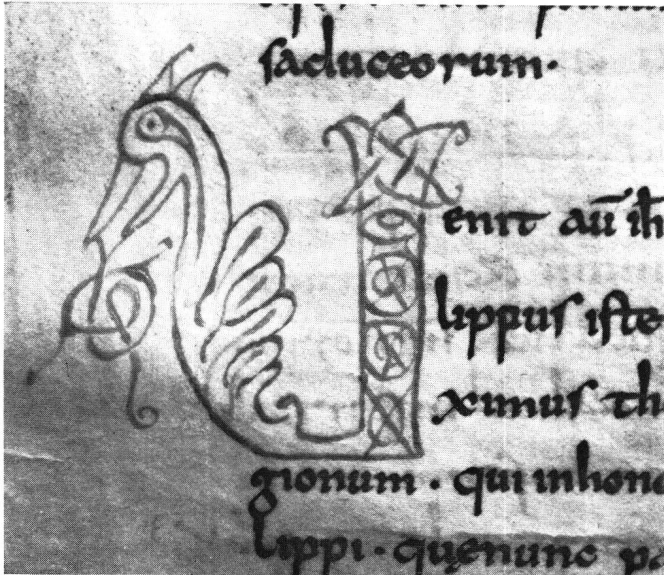 saduceorum.
Uenit aū ih̄
lippus iste
ximus th
gionum. qui inhono
lippi. quę nunc pa